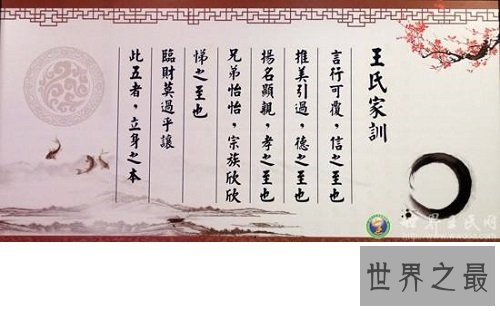 王氏家訓
言行可覆，信之至也
推美引過，德之至也
揚名顯親，孝之至也
兄弟怡怡，宗族欣欣
悌之至也
臨財莫過乎讓
此五者，立身之本
世界王氏网
世界之最